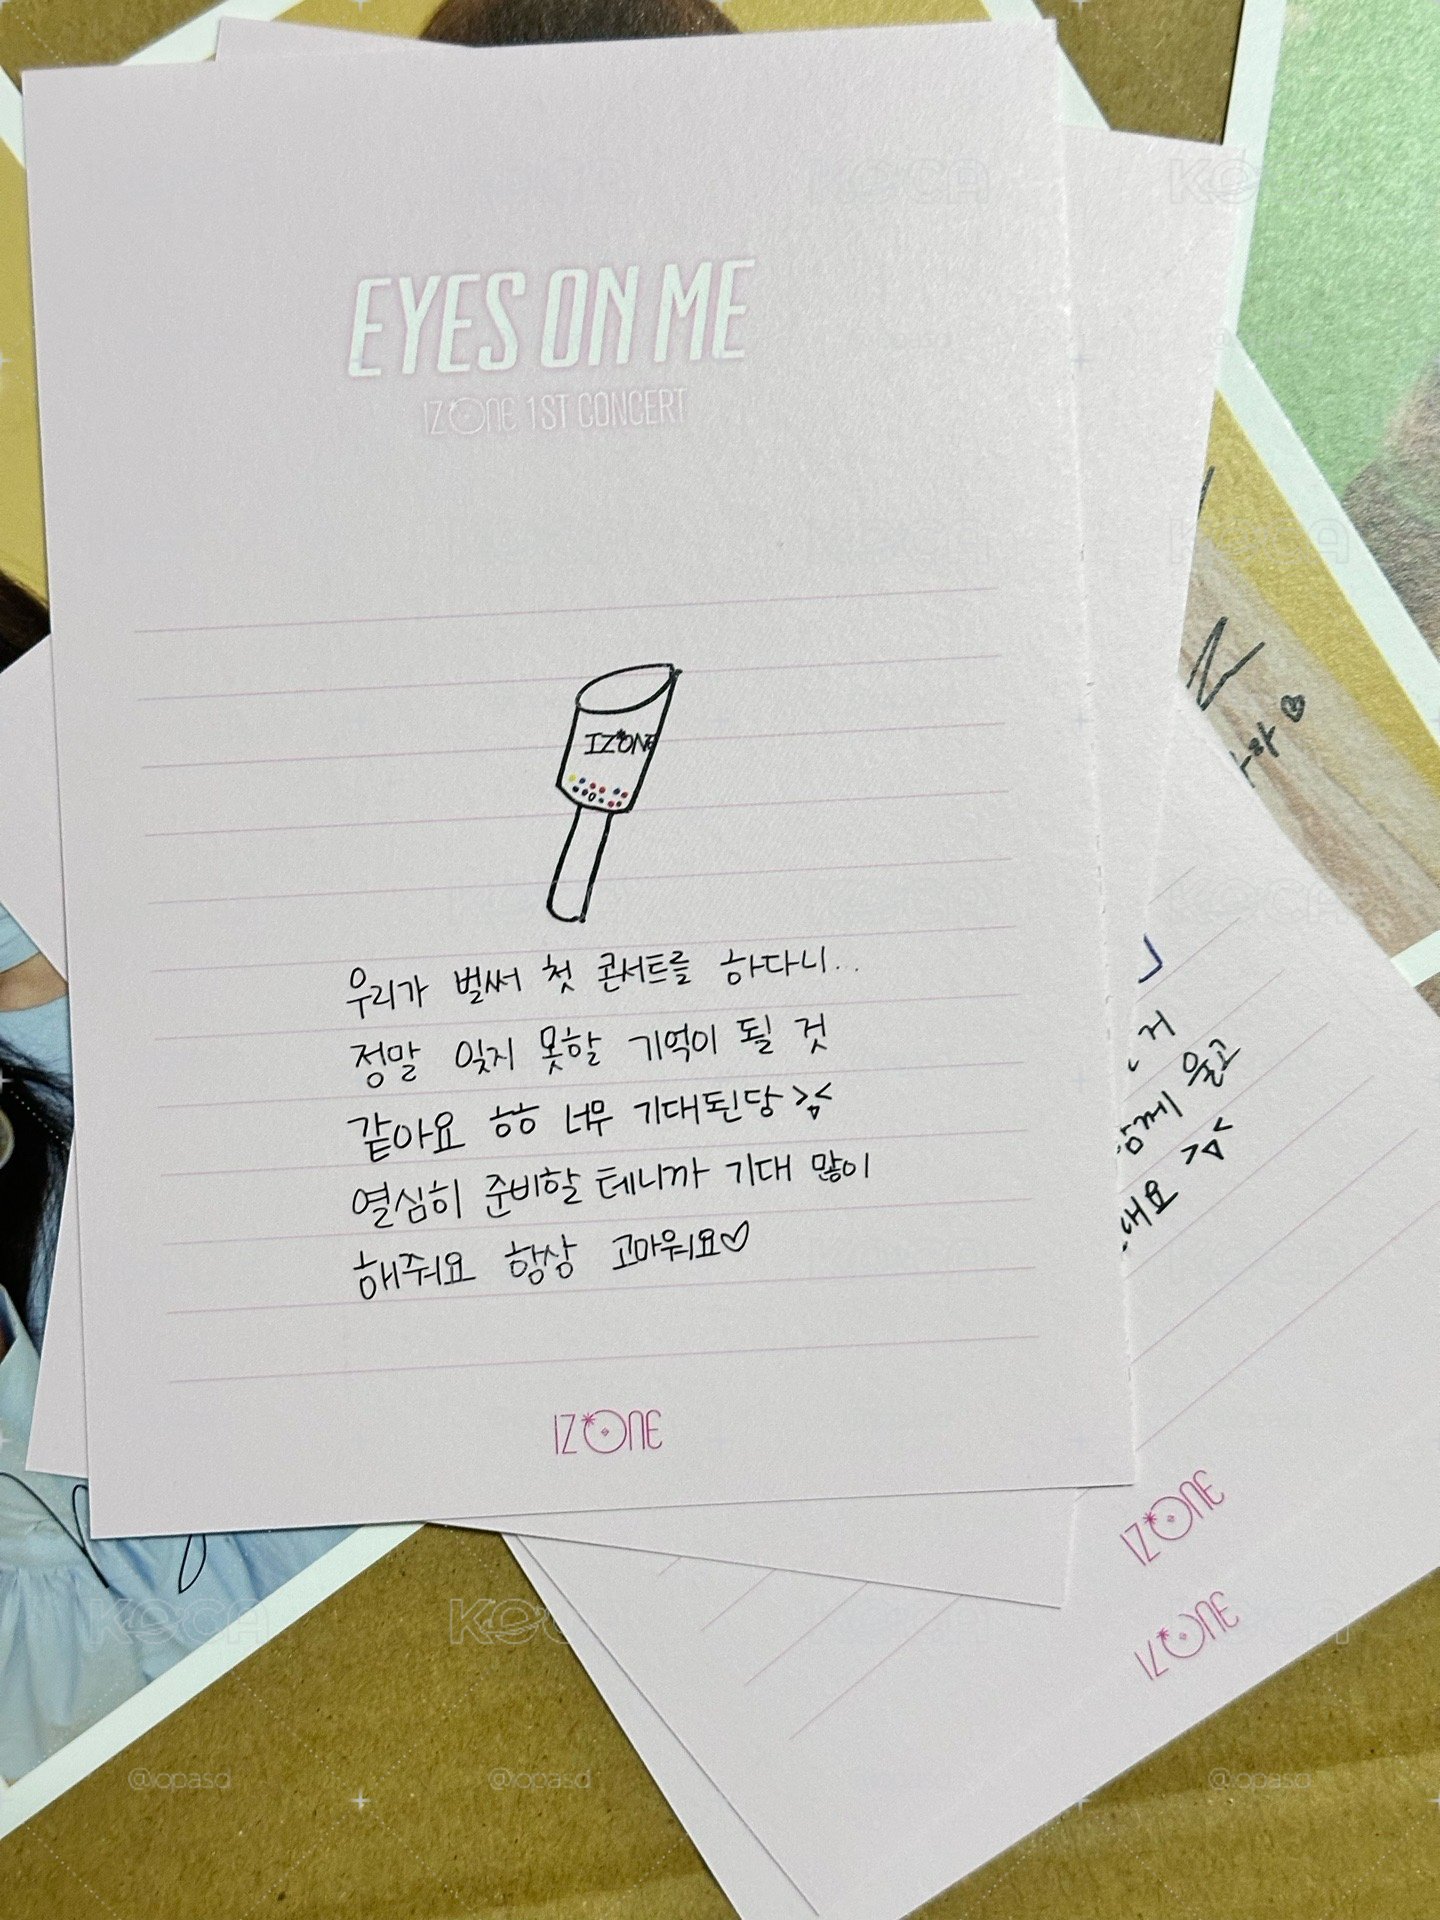 EYES ON ME
IZ*ONE 1ST CONCERT
IZ*ONE
우리가 벌써 첫 콘서트를 하다니..
정말 잊지 못할 기억이 될 것
같아요 ㅎㅎ 너무 기대된당 >△<
열심히 준비할 테니까 기대 많이
해줘요 항상 고마워요♡
IZ*ONE
거
함께 울고
>△<
해요
IZ*ONE
IZ*ONE
KOCA
KOCA
KOCA
KOCA
KOCA
@lopasd
@lopasd
@lopasd